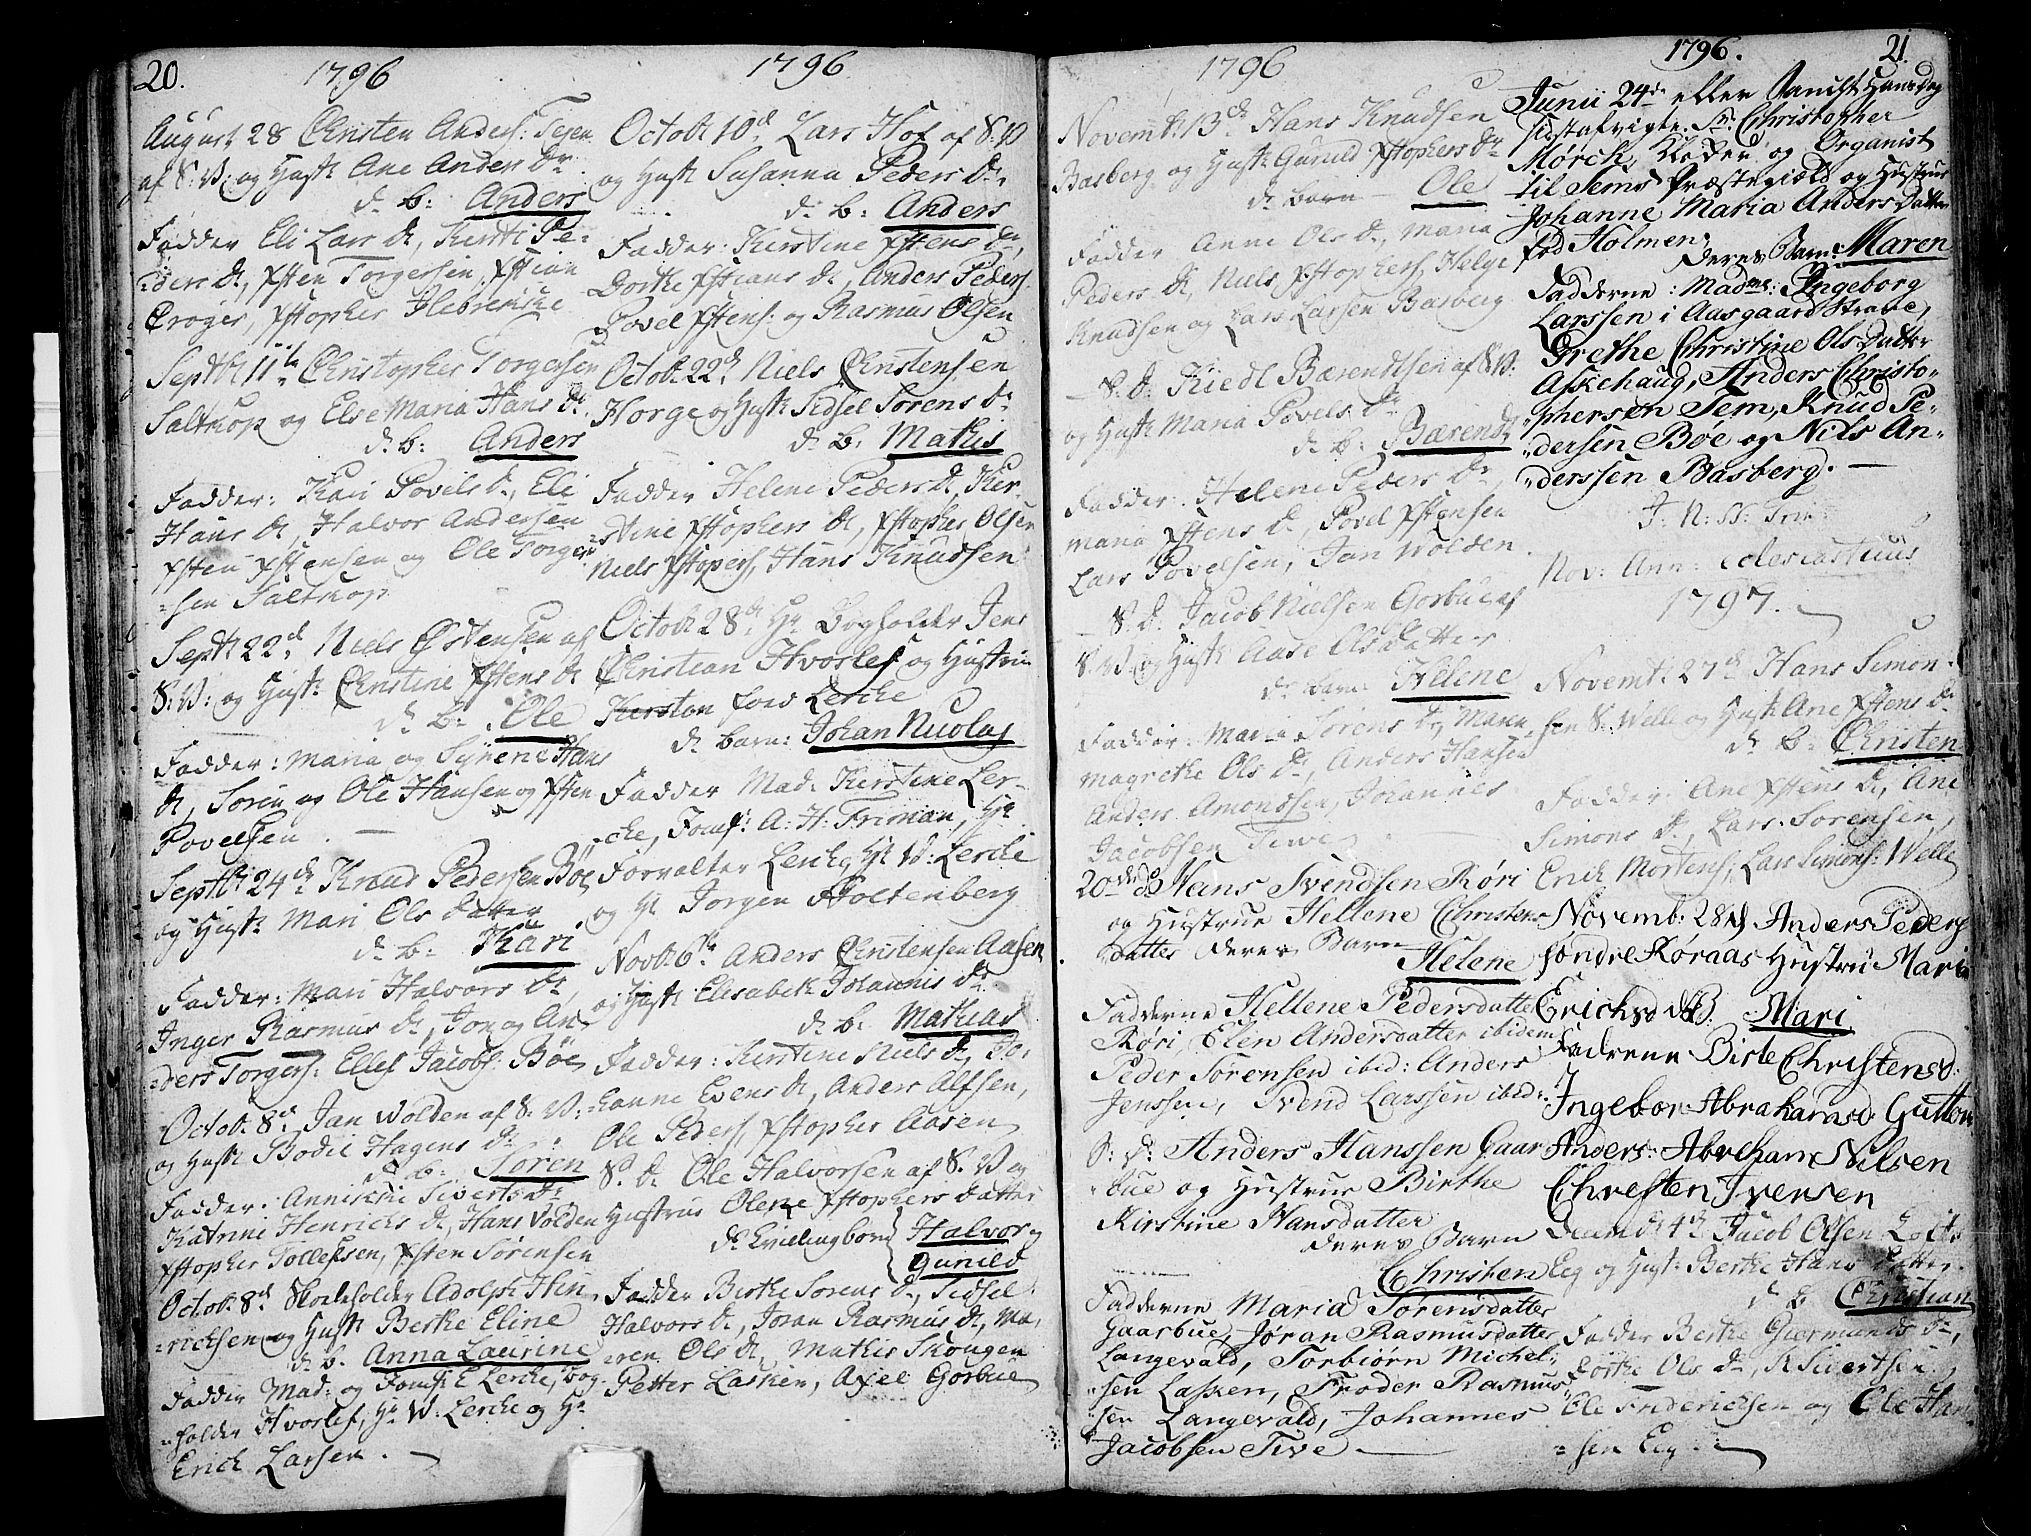 20.
1796
August 28 Christen Anders: Tejen
af S: V: og Hust: Ane Anders Dr
d. b: Anders
Fadder Eli Lars D, Kirsti Pe-
ders D, Xsten Torgersen, Xstian
Croger, Xstopher
Septbr 11te Christopher Torgersen
Saltkop og Else Maria Hans D.
d. b: Anders
Fadder: Kari Povels D, Eli
Hans D, Halvor Andersen
Xsten Xstensen og Ole Torger
sen Saltkop
Septbr 22d Niels Østensen af
S: V: og Hust: Christine Xstens D
d. b: Ole
Fadder: Maria og Synene Hans
D, Soren og Ole Hansen og Xsten
Povelsen
Septbr 24de Knud Pedersen Böe
og Hust: Mari Ols Datter
d. b: Kari
Fadder: Mari Halvors D,
Inger Rasmus D, Jon og An-
ders Torgers: Ellef Jacobs: Böe
Octob: 8d Jan Wolden af S: V:
og Hust Bodil Hagens D
d. b: Soren
Fadder: Annikche Siverts D
Katrine Henrichs D, Hans Volden
Xstopher Tollefsen, Xsten Sörensen
Octob: 8d Skoleholder Adolph Hen
richsen og Hust: Berthe Eline
d. b. Anna Laurine
Fadder Mad: og Jomf: E Lerche, Bog-
holder Hvoslef, Hr W. Lerche og Hr
Erich Larsen
1796
Octob: 10d Lars Hof af S: V
og Hust Susanna Peders D.
d. b: Anders
Fadder: Kirstine Xstens D,
Dorthe Xstians D, Anders Peders
Povel Xstens: og Rasmus Olsen
Octob: 22d Niels Christensen
Horge og Hust: Sidsel Sorens D
d. b. Mathis
Fadder Helene Peders D, Kir-
stine Xstophers D, Xstopher Olsen
Niels Xstopers, Hans Knudsen
Octob: 28d Hr Bogholder Jens
Christian Hvoslef og Hustru
Kirsten föed Lerche
d. barn: Johan Nicolay
Fadder Mad: Kirstine Ler-
che, Jomf: A: H: Friman, Hr
Forvalter Lerche, Hr W: Lerche
og Hr Jorgen Holtenberg
Novbr: 6te Anders Christensen Aasen
og Hust: Elisabeth Johannis D
d. b. Mathias
Fadder: Kirstine Niels D, Jo-
hanne Evens D, Anders Alfsen,
Ole Peders, Xstopher Aasen
S. D. Ole Halvorsen af S. V og
Hustrue Olene Xstophers Datter
De tvillingborn Halvor og
Gunild
Fadder Berthe Sorens D, Sidsel
Halvors D, Joran Rasmus D, Ma-
ren Ols D, Mathis Skougen
Petter Lasken, Axel Gorbue
1796
Novemb: 13de Hans Knudsen
Basberg og Hust: Gunild Xstophers D
d. barn Ole
Fadder Anne Ols D, Maria
Peders D, Niels Xstophers, Helge
Knudsen og Lars Larsen Basberg
S. D. Kield Bærendtsen af S V:
og Hust: Maria Povels D
d. b: Bærend
Fadder: Helene Peders D,
Maria Xstens D, Povel Xstensen
Lars Povelsen, Jan Wolden
S. D. Jacob Nielsen Gorbue af
S. V. og Hust: Aase Olsdatter
d. barn: Helene
Fadder: Maria Sorens D, Maria
Magrethe Ols D, Anders Hansen
Anders Amondsen, Johannes
Jacobsen Tive
20de Hans Svendsen Röri
og Hustrue Hellene Christens
datter deres Barn
Helene
Fadderne Hellene Pedersdatter
Röri Elen Andersdatter ibidem
Peder Sörensen ibid: Anders
Jenssen, Svend Larssen ibid:
S: D: Anders Hanssen Gaar
bue og Hustrue Birthe
Kirstine Hansdatter
deres Barn
Christen
Fadderne Maria Sörensdatter
Gaarbue, Jöran Rasmusdatter
Langevald, Torbiörn Michel-
sen Lasken, Froder Rasmus
sen Langevald, Johannes
Jacobsen Tive
1796.
21.
Junii 24de eller Sanct Hansdag
sidstafvigte. Sr. Christopher
Mörch, Klocker og Organist
til Sems Præstegield og Hustrue
Johanne Maria Anders Datter
föd Holmen,
deres Barn: Maren
Fadderne: Madme: Ingeborg
Larssen i Aasgaard Strane,
Grethe Christine Ols Datter
Askehaug, Anders Christo-
phersen Sem, Knud Pe-
dersen Böe og Nils An-
derssen Basberg.
J: N: SS: Trin:
Nov: Ann: Eclesiasticus
1797.
Novemb: 27de Hans Simon-
sen S: Welle og Hust: Ane Xstens D
d. b: Christen
Fadder: Ane Xstens D, Ane
Simons D, Lars Sorensen,
Erich Mortens, Lars Simons: Welle
Novemb: 28d Anders Peders
söndre Röraas Hustru Mari
Ericksd dB. Mari
Fadrene Birte Christensd:
Ingebor Abrahamsd: Gutton
Anders: Abraham Nilsen
Chresten Iversen
Decemb: 4de Jacob Olsen
Eeg og Hust: Berthe Hans Datter
d. b. Christian
Fadder Berthe Giermunds D,
Dorthe Ols D, Sivertsen
Ole Friderichsen og Ole Han
sen Eeg